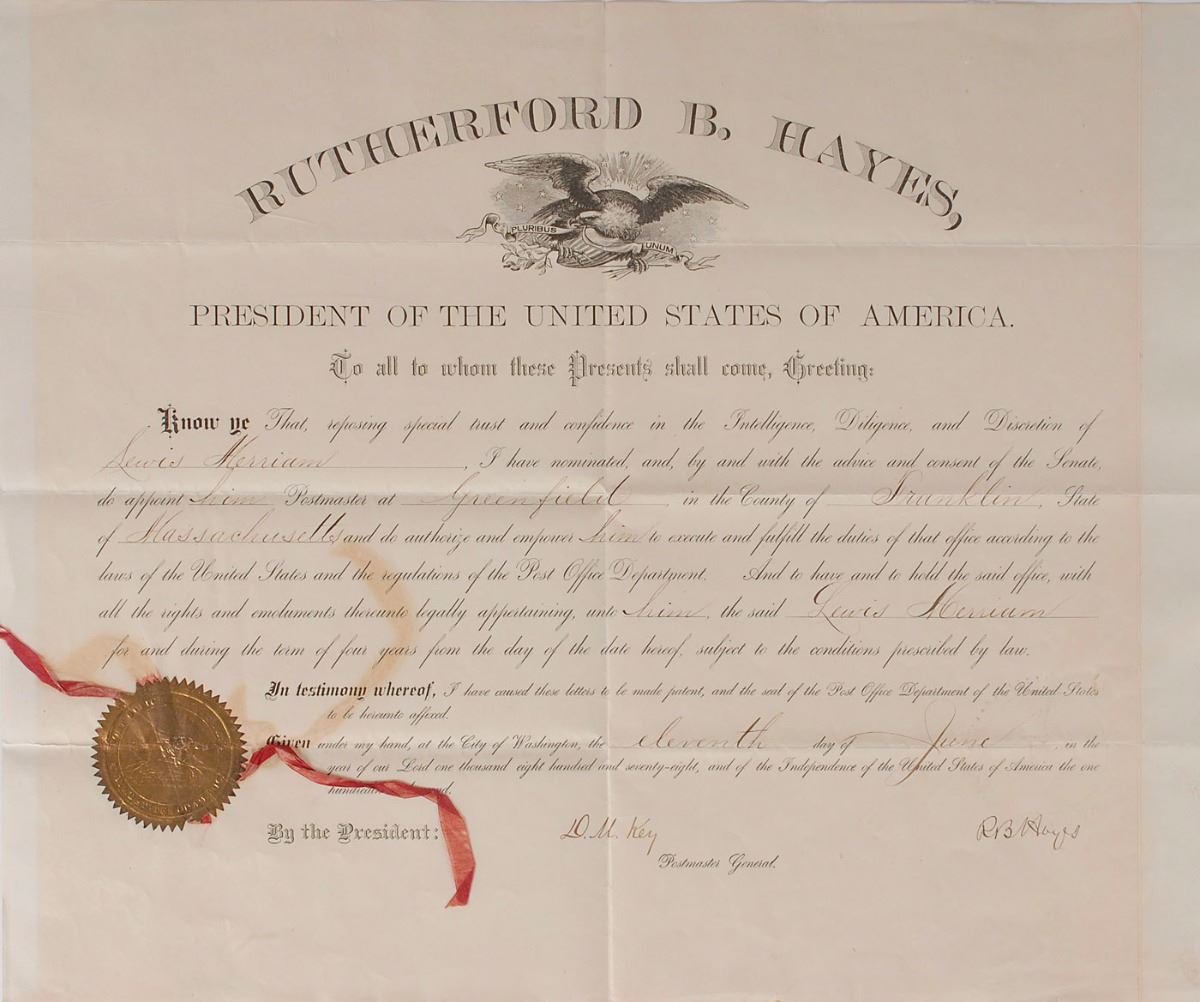 RUTHERFORD B. HAYES,
PLURIBUS UNUM
PRESIDENT OF THE UNITED STATES OF AMERICA.
To all to whom these Presents shall come, Greeting:
Know ye That, reposing special trust and confidence in the Intelligence, Diligence, and Discretion of
Lewis Merriam, I have nominated, and, by and with the advice and consent of the Senate,
do appoint him Postmaster at Greenfield, in the County of Franklin, State
of Massachusetts and do authorize and empower him to execute and fulfill the duties of that office according to the
laws of the United States and the regulations of the Post Office Department. And to have and to hold the said office, with
all the rights and emoluments thereunto legally appertaining, unto him, the said Lewis Merriam
for and during the term of four years from the day of the date hereof, subject to the conditions prescribed by law.
In testimony whereof, I have caused these letters to be made patent, and the seal of the Post Office Department of the United States
to be hereunto affixed.
Given under my hand, at the City of Washington, the eleventh day of June, in the
year of our Lord one thousand eight hundred and seventy-eight, and of the Independence of the United States of America the one
By the President:
D. M. Key
R B Hayes
Postmaster General.